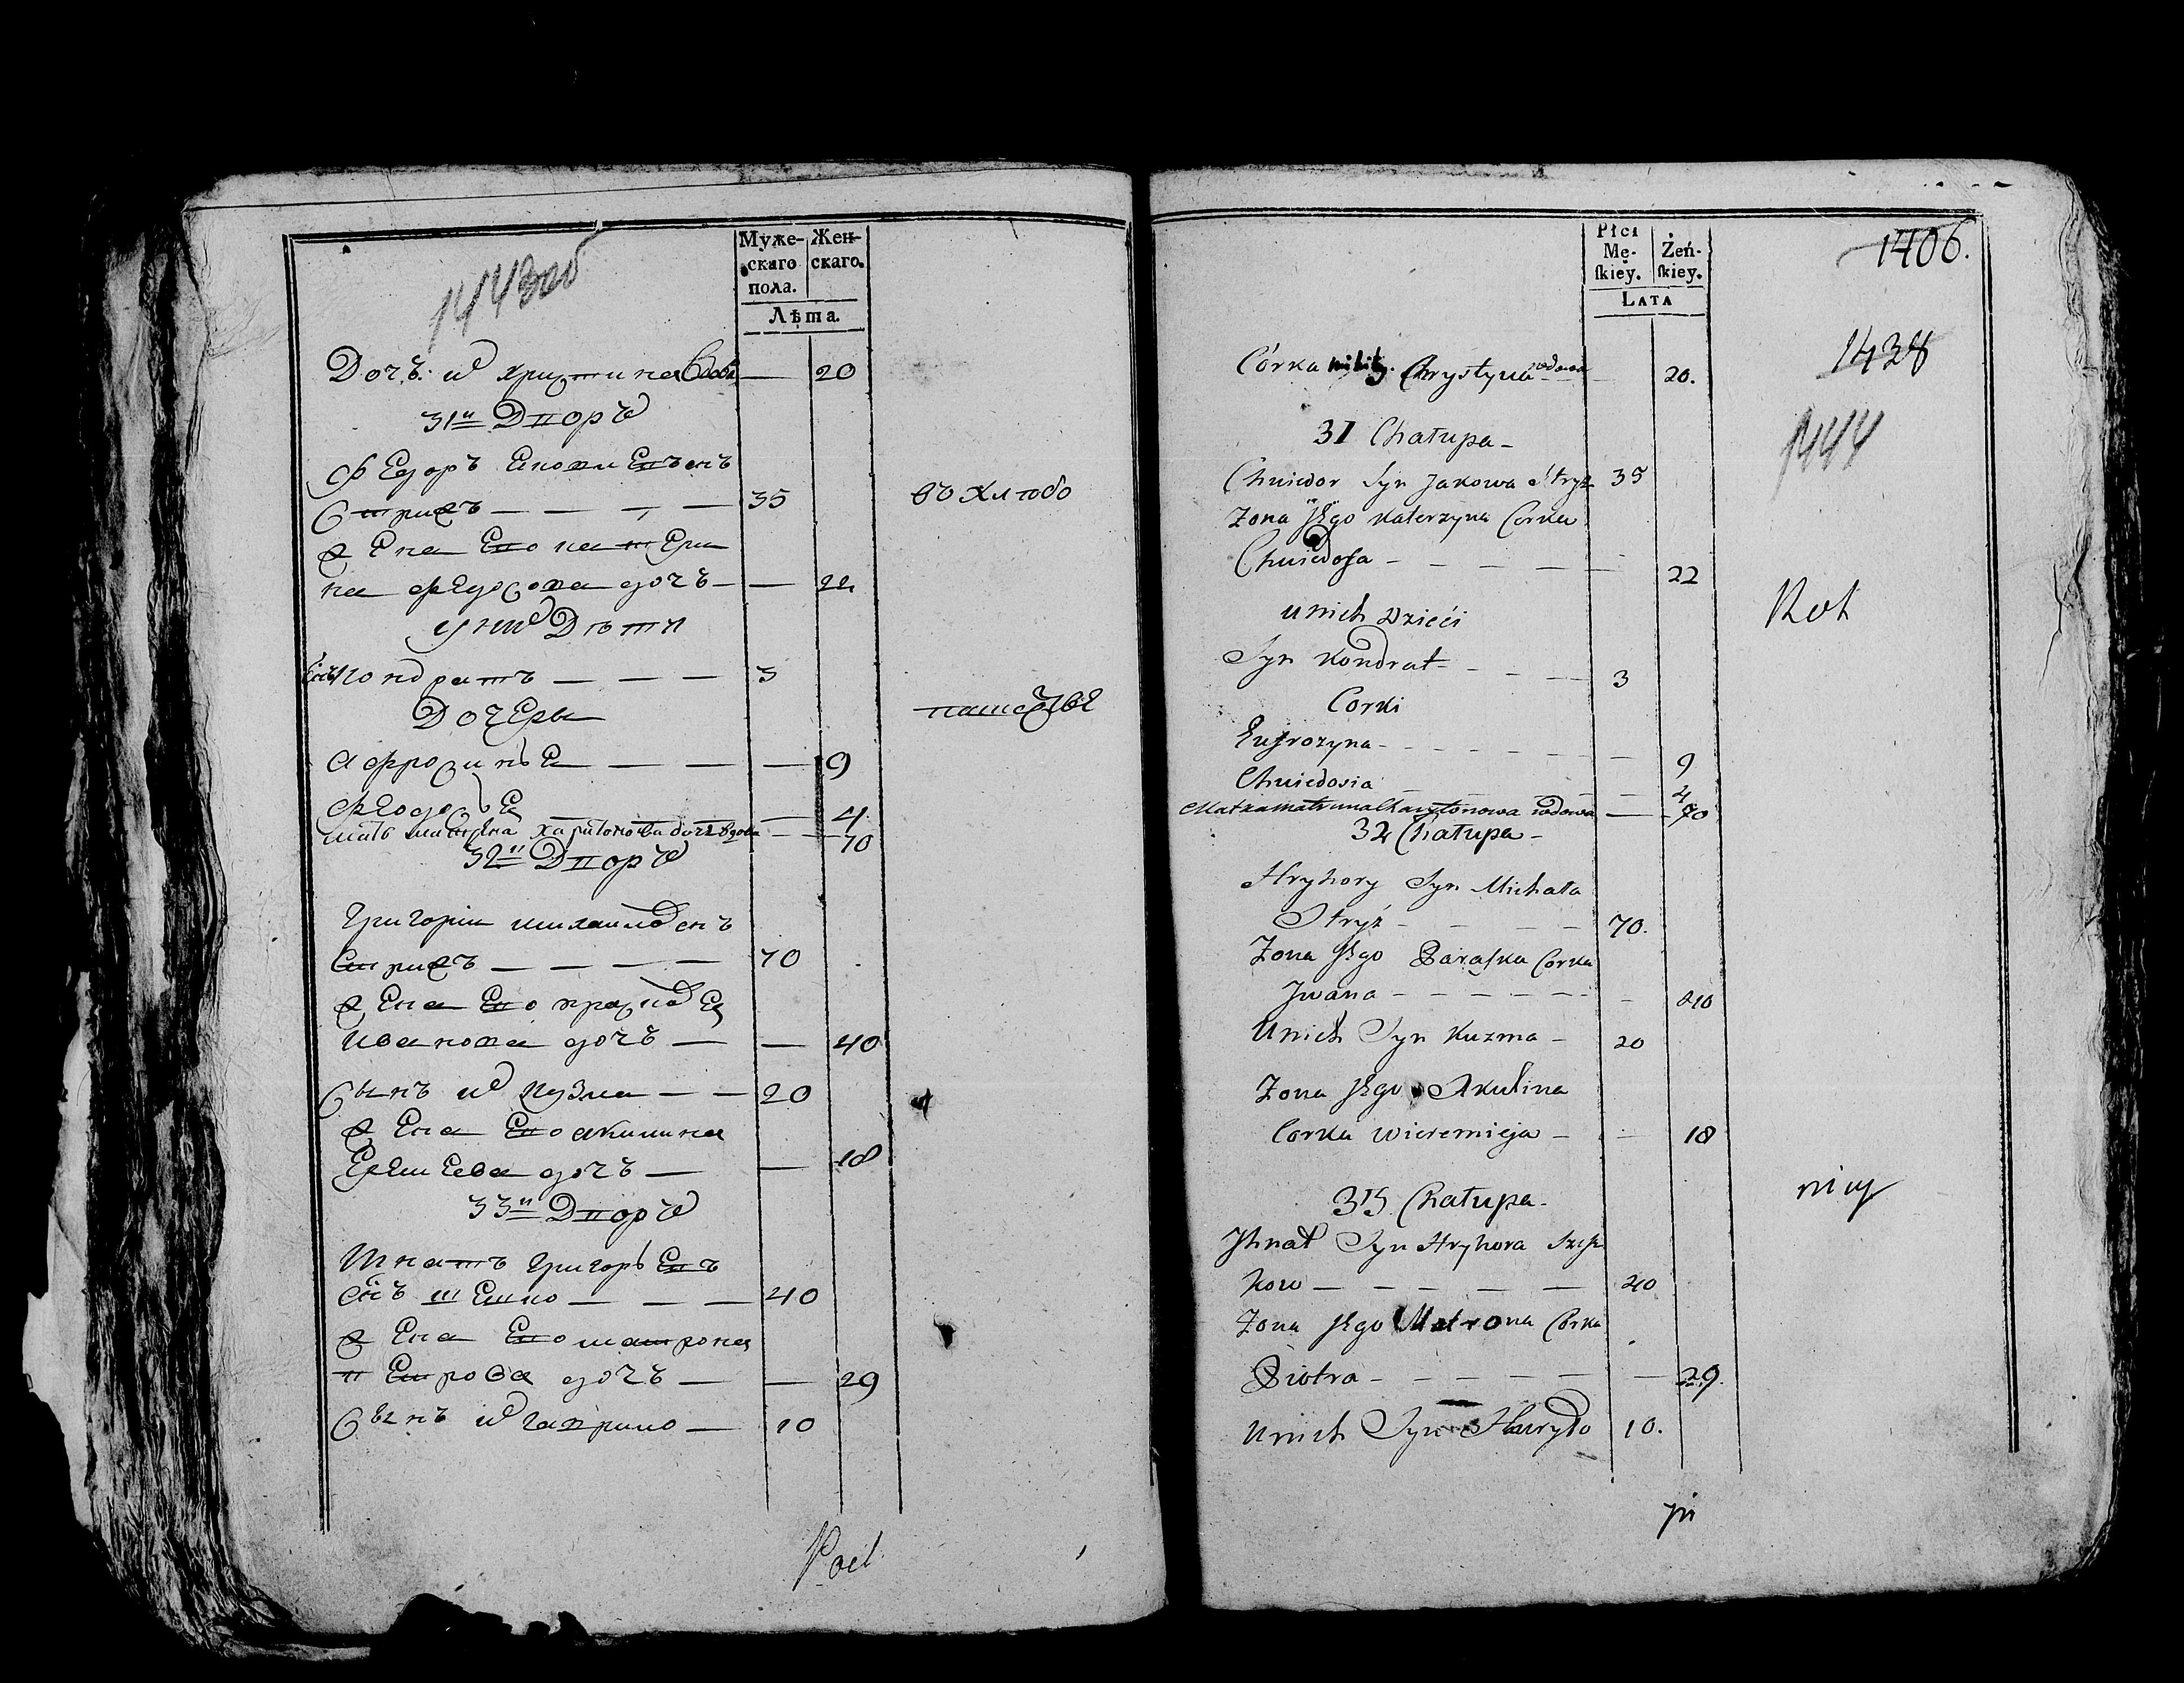 1443об
Муже-
скаго
пола.
Жен-
скаго.
Лѣта.
Дочъ: их христина вдова — 20
31й Дворъ
Федоръ Яковлевъ снъ
Стрижъ — — — — 35
въ хлѣбо
Жена Его катери
на федосова дочъ — — 22
у них Дѣти
Снъ Кондратъ — — — 3
Дочери
пашестве
Афросинья — — — — 9
Федосья — — 4
мать матрена харитонова дочь вдова — — 70
32й Дворъ
Григории михаилов снъ
Стрижъ — — — — 70
Жена Его прасковея
Иванова дочъ — — 40
Сынъ их Кузма — — 20
Жена Его акилина
Еремеева дочъ — — 18
33й Дворъ
Игнатъ Григорьевъ
снъ — — — 40
Жена Его матрона
петрова дочъ — — 29
Сынъ их гаврило — 10
Płci
Mę-
skiey.
Żeń-
skiey.
LATA
1406.
1438
1444
Córka Chrystyna wdowa — 20.
31 Chałupa —
Chwiedor Syn Jakowa Stryż 35
Zona Jego Katerzyna Corka
Chwiedosa — — — — — 22
Rot
unich Dzieći
Syn Kondrat — — — 3
Corki
Eufrozyna — — — — — — — 9
Chwiedosia — — — — 4
Matka Matruna Charytonowa wdowa — 70
32 Chałupa —
Hryhory Syn Michała
Stryż — — — — 70.
Zona Jego Paraska Corka
Jwana — — — — — — — 40
Unich Syn Kuzma — 20
Zona Jego Akulina
Corka Wieremieja — — 18
33 Chałupa —
Jhnat Syn Hryhora Szesz
kow — — — — — 40
Zona Jego Matrona Corka
Piotra — — — — — — 29.
Unich Syn Hawryło 10.